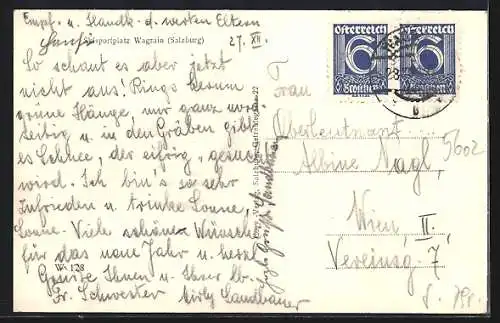 Empf. u. Handk. d. werten Eltern
Skisportplatz Wagrain (Salzburg)
27. XII.
So schaut es aber jetzt
nicht aus! Rings herum
grüne Hänge, nur ganz
seitig u. in den Gräben gibt
es Schnee, der eifrig gesucht
wird. Ich bin's so sehr
zufrieden u. trinke Sonne,
Sonne. Viele schöne Wünsche
für das neue Jahr u. herzl.
Grüsse Ihnen u. Ihrer lb.
Fr. Schwester Landbauer
Wi 128
Österreich
6
Groschen
Österreich
6
Groschen
Frau
Oberleutnant
Albine Nagl,
Wien, II.,
Vereinsg. 7